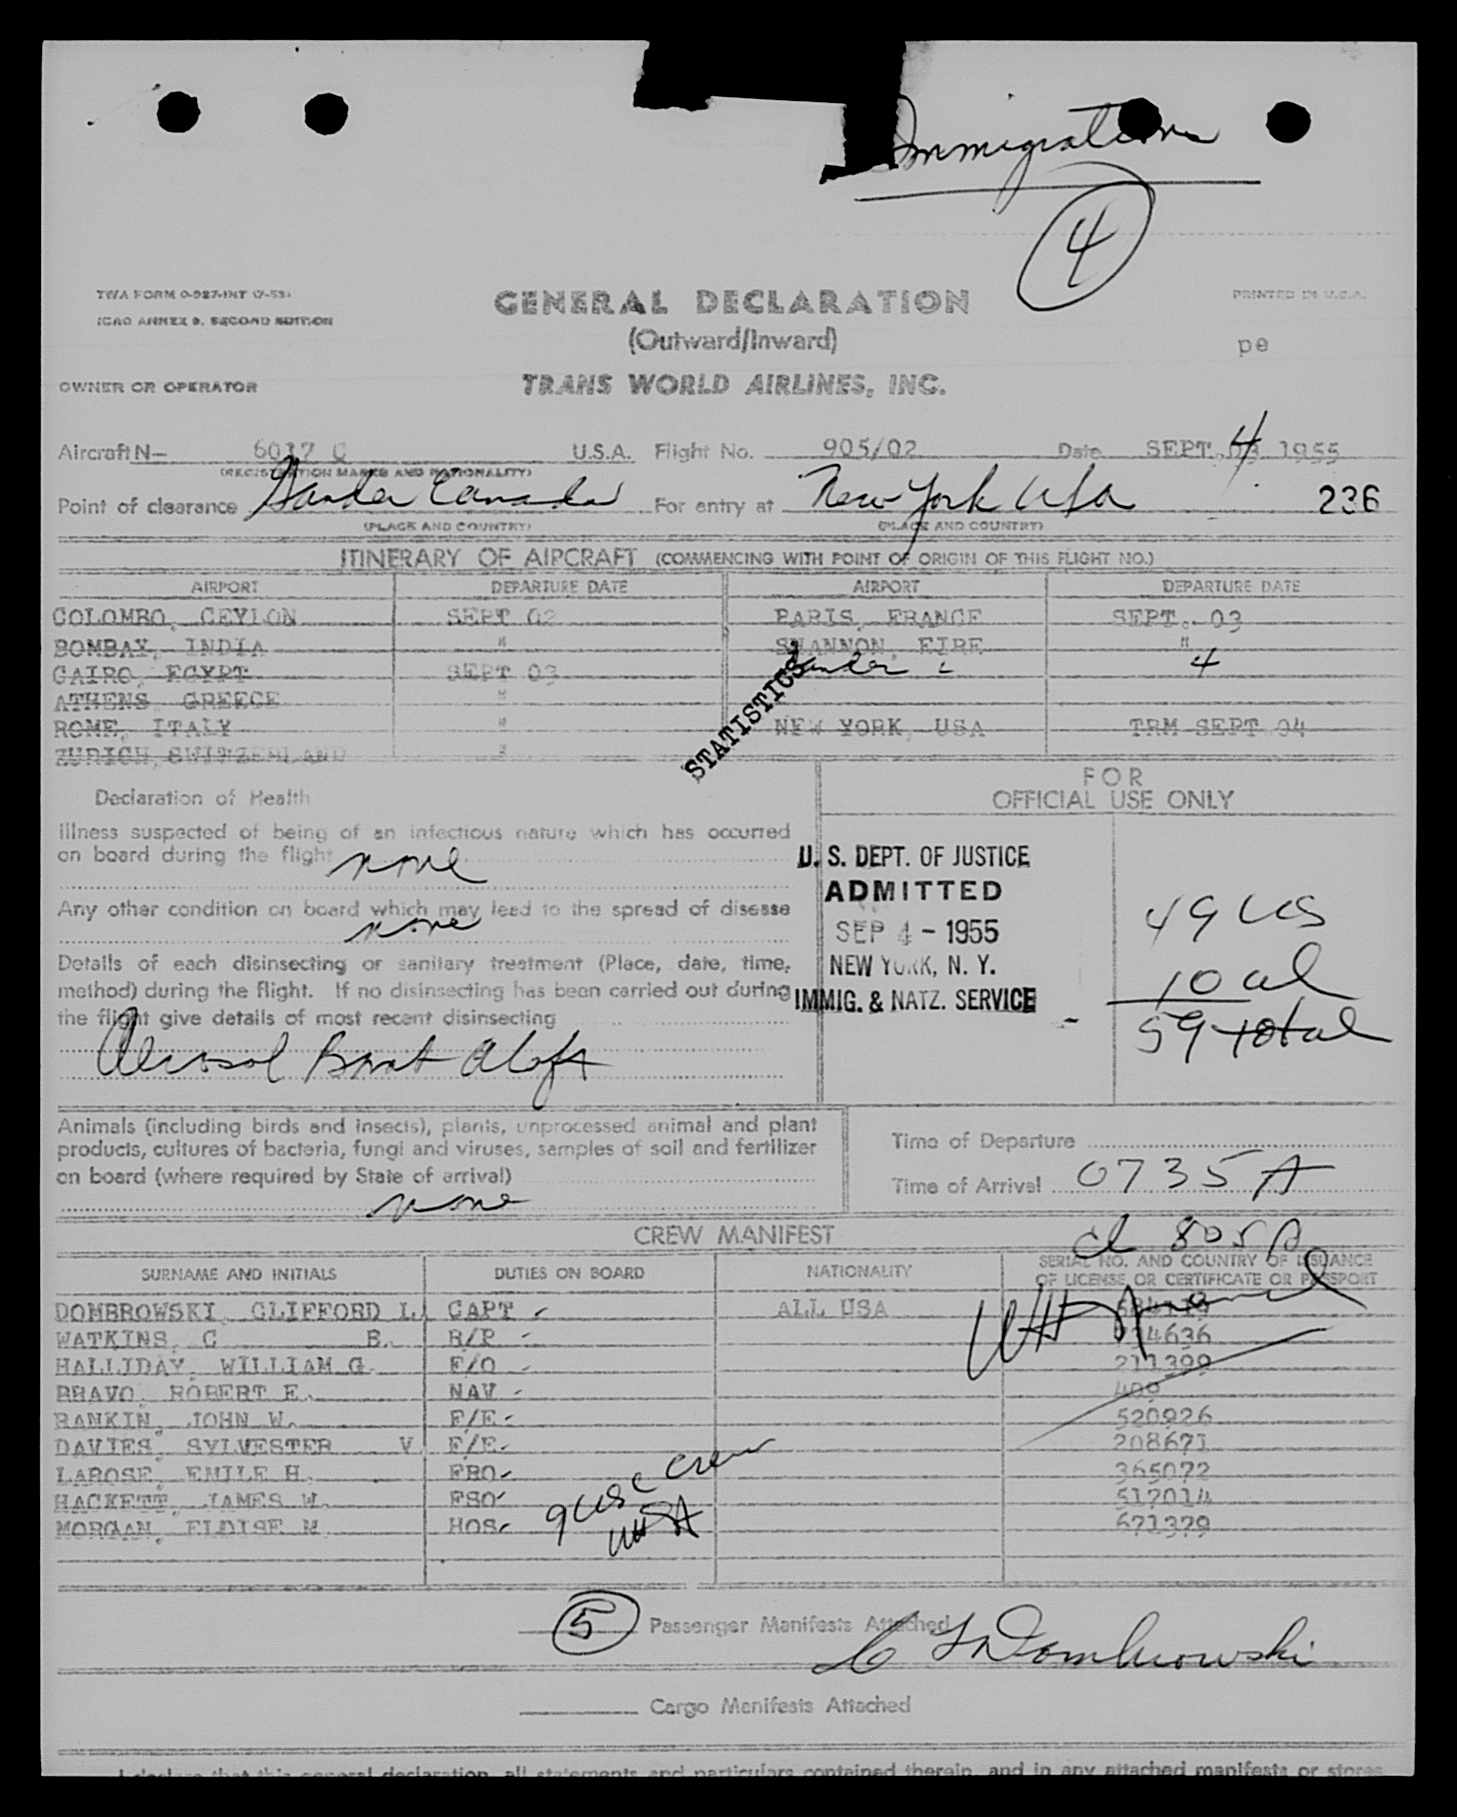 Immigration
4
TWA FORM O-927-INT (7-53)
ICAO ANNEX 9, SECOND EDITION
GENERAL DECLARATION
PRINTED IN U.S.A.
(Outward/Inward)
pe
OWNER OR OPERATOR
TRANS WORLD AIRLINES, INC.
Aircraft N— 6017 C U.S.A. Flight No. 905/02 Date SEPT. 4 1955
(REGISTRATION MARKS AND NATIONALITY)
Point of clearance Gander Canada For entry at New York USA 236
(PLACE AND COUNTRY) (PLACE AND COUNTRY)
ITINERARY OF AIRCRAFT (COMMENCING WITH POINT OF ORIGIN OF THIS FLIGHT NO.)
AIRPORT DEPARTURE DATE AIRPORT DEPARTURE DATE
COLOMBO, CEYLON SEPT 02 PARIS, FRANCE SEPT. 03
BOMBAY, INDIA " SHANNON, EIRE "
CAIRO, EGYPT SEPT 03 Gander 4
ATHENS GREECE "
ROME, ITALY " NEW YORK, USA TRM SEPT 04
ZURICH, SWITZERLAND "
STATISTICS
Declaration of Health
Illness suspected of being of an infectious nature which has occurred
on board during the flight none
Any other condition on board which may lead to the spread of disease
none
Details of each disinsecting or sanitary treatment (Place, date, time,
method) during the flight. If no disinsecting has been carried out during
the flight give details of most recent disinsecting
Aerosol Bomb Aloft
FOR
OFFICIAL USE ONLY
U. S. DEPT. OF JUSTICE
ADMITTED
SEP 4 - 1955
NEW YORK, N. Y.
IMMIG. & NATZ. SERVICE
49 US
10 al
59 total
Animals (including birds and insects), plants, unprocessed animal and plant
products, cultures of bacteria, fungi and viruses, samples of soil and fertilizer
on board (where required by State of arrival)
none
Time of Departure
Time of Arrival 0735 A
cl 805 A
CREW MANIFEST
SURNAME AND INITIALS DUTIES ON BOARD NATIONALITY SERIAL NO. AND COUNTRY OF ISSUANCE
OF LICENSE OR CERTIFICATE OR PASSPORT
DOMBROWSKI, CLIFFORD L. CAPT ALL USA
WATKINS, C E. R/P
HALLIDAY, WILLIAM G. F/O 211399
BRAVO, ROBERT E. NAV 409
RANKIN, JOHN W. F/E 520926
DAVIES, SYLVESTER V F/E 208671
LAROSE, EMILE H. FRO 365072
HACKETT, JAMES W. FSO 517014
MORGAN, ELOISE M HOS 671379
9 usc crew
5 Passenger Manifests Attached
C L Dombrowski
Cargo Manifests Attached
I declare that this general declaration, all statements and particulars contained therein, and in any attached manifests or stores